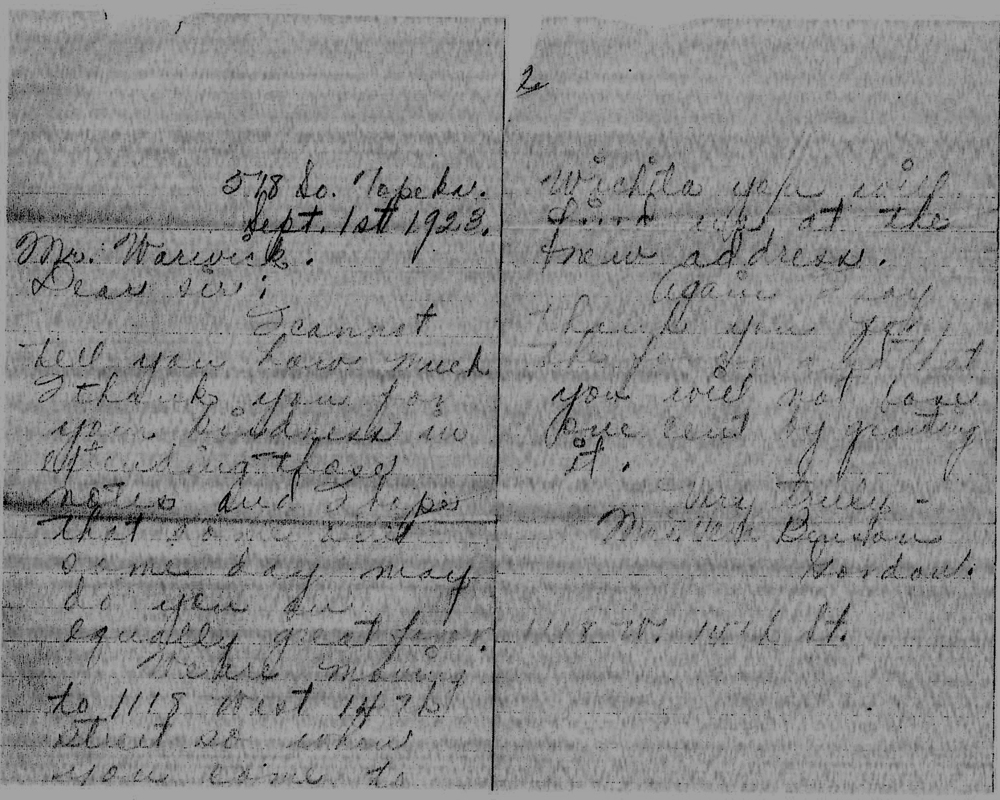 518 So. Topeka.
Sept. 1st 1923.
Mr. Warwick.
Dear sir;
I cannot
tell you how much
I thank you for
your kindness in
those
notes and I hope
that some
some day may
do you an
equally great favor.
We are moving
to 1118 West 14th
street so when
you come to
2
Wichita you will
find us at the
new address.
Again I say
thank you
that
you will not lose
one cent by
it.
Very truly -
Benson
Gordon.
1118 W. 14th St.